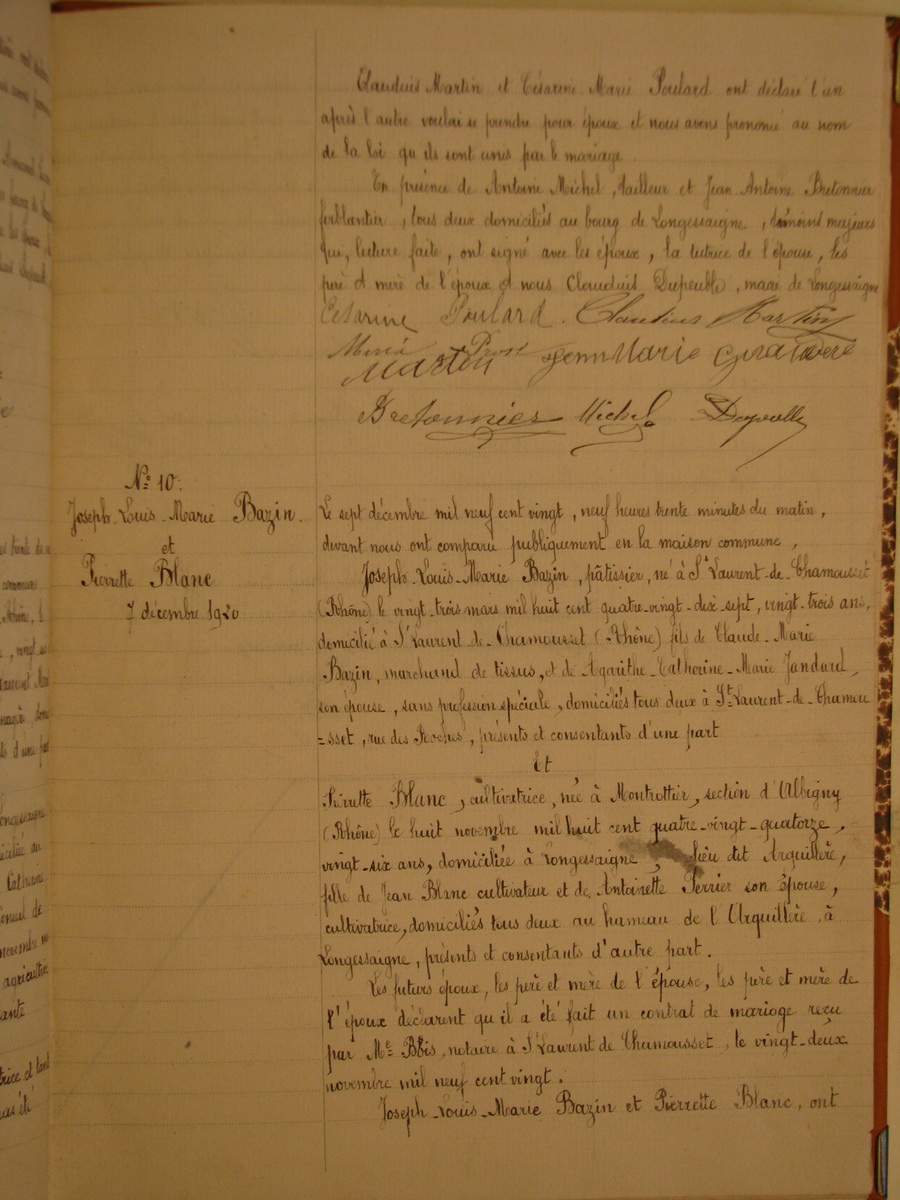 Claudius Martin et Césarine Marie Poulard ont déclaré l'un
après l'autre vouloir se prendre pour époux et nous avons prononcé au nom
de la loi qu'ils sont unis par le mariage
En présence de Antoine Michel, tailleur et Jean Antoine Bretonnier
ferblantier, tous deux domiciliés au bourg de Longessaigne, témoins majeurs
qui, lecture faite, ont signé avec les époux, la tutrice de l'épouse, les
père et mère de l'époux et nous Claudius Dupeuble, maire de Longessaigne
Césarine Poulard. Claudius Martin
Maria Prost
Martin Jean Marie
Bretonnier Michel Dupeuble
N° 10.
Joseph-Louis-Marie Bazin.
et
Pierrette Blanc
7 décembre 1920
Le sept décembre mil neuf cent vingt, neuf heures trente minutes du matin,
devant nous ont comparu publiquement en la maison commune,
Joseph-Louis-Marie Bazin, pâtissier, né à St Laurent-de-Chamousset
(Rhône) le vingt-trois mars mil huit cent quatre-vingt-dix-sept, vingt-trois ans,
domicilié à St Laurent-de-Chamousset (Rhône) fils de Claude-Marie
Bazin, marchand de tissus, et de Agarithe-Catherine-Marie Jandard,
son épouse, sans profession spéciale, domiciliés tous deux à St-Laurent-de-Chamou
=sset, rue des Roches, présents et consentants d'une part
Et
Pierrette Blanc, cultivatrice, née à Montrottier, section d'Albigny
(Rhône) le huit novembre mil huit cent quatre-vingt-quatorze,
vingt-six ans, domiciliée à Longessaigne, lieu dit Arquillère,
fille de Jean Blanc cultivateur et de Antoinette Perrier son épouse,
cultivatrice, domiciliés tous deux au hameau de l'Arquillère, à
Longessaigne, présents et consentants d'autre part.
Les futurs époux, les père et mère de l'épouse, les père et mère de
l'époux déclarent qu'il a été fait un contrat de mariage reçu
par Me Bbis, notaire à St Laurent de Chamousset, le vingt-deux
novembre mil neuf cent vingt.
Joseph-Louis-Marie Bazin et Pierrette Blanc, ont